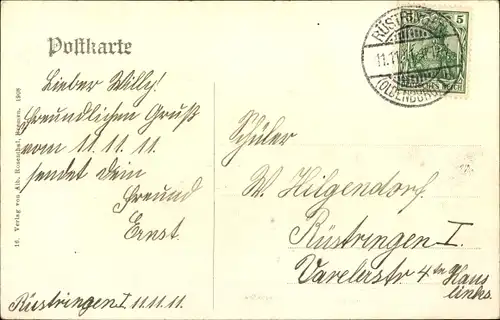 Postkarte
Lieber Willy!
Freundlichen Gruß
vom 11. 11. 11.
sendet Dein
Freund
Ernst.
Rüstringen I 11.11.11.
16. Verlag von Alb. Rosenthal, Bremen. 1908
RÜSTRINGEN
11.11.11
(OLDENBURG)
5
REICH
Schüler
W. Hilgendorf.
Rüstringen I.
Varelerstr 4 Haus
links.